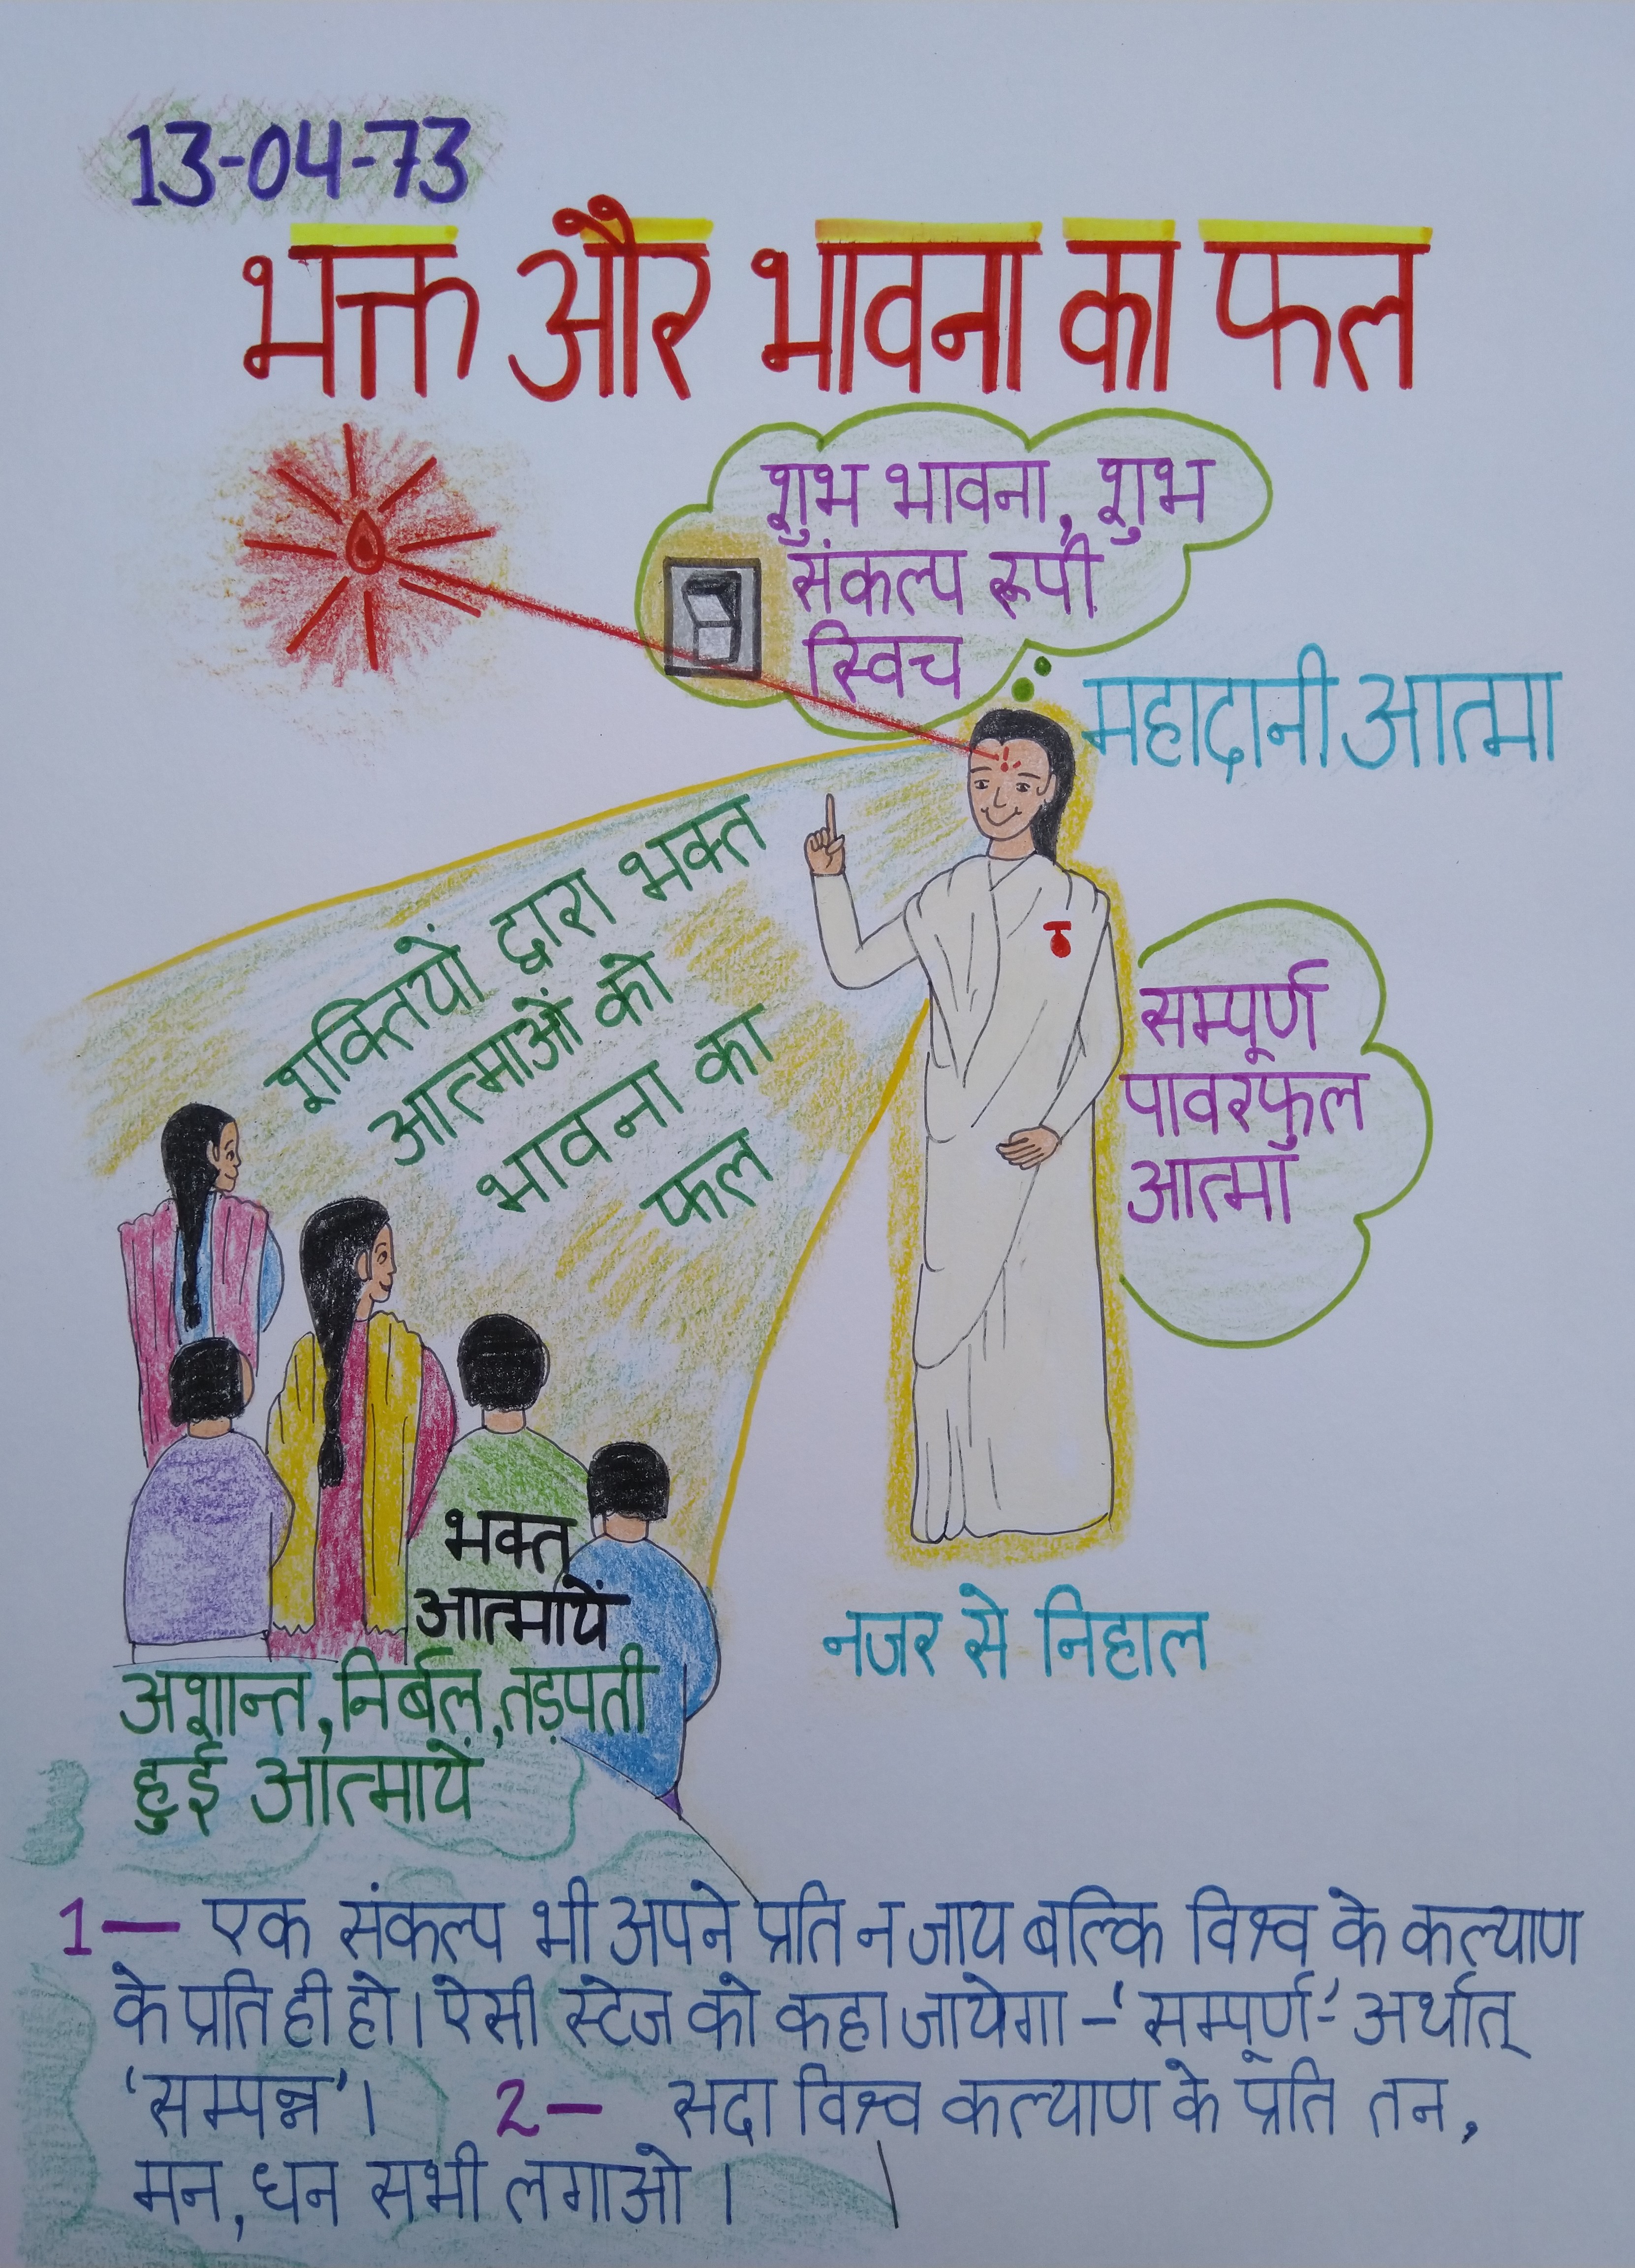 13-04-73
भक्त और भावना का फल
शुभ भावना, शुभ
संकल्प रूपी
स्विच
महादानी आत्मा
शक्तियों द्वारा भक्त
आत्माओं को
भावना का
फल
सम्पूर्ण
पावरफुल
आत्मा
भक्त
आत्मायें
नजर से निहाल
अशान्त, निर्बल, तड़पती
हुई आत्मायें
1— एक संकल्प भी अपने प्रति न जाय बल्कि विश्व के कल्याण
के प्रति ही हो। ऐसी स्टेज को कहा जायेगा –'सम्पूर्ण-' अर्थात्
'सम्पन्न'। 2— सदा विश्व कल्याण के प्रति तन,
मन, धन सभी लगाओ।